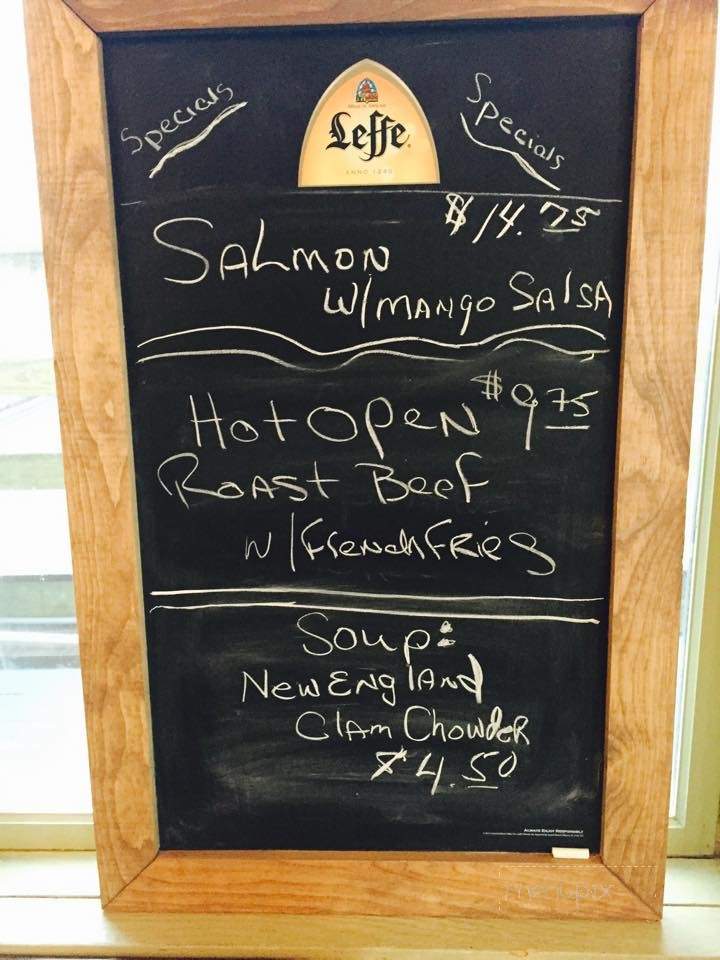 Specials
Specials
Leffe
ANNO 1240
$14.75
SALMON
W/MANGO SALSA
$9.75
Hot OPeN
ROAST BeeF
W/FrenchFRies
Soup:
New ENglANd
Clam ChowdeR
$4.50
ALWAYS ENJOY RESPONSIBLY
menupix